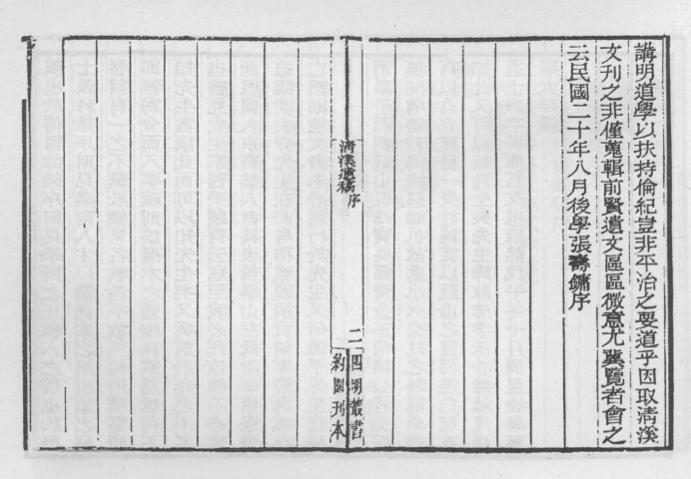 講明道學以扶持倫紀豈非平治之要道乎因取清溪
文刊之非僅蒐輯前賢遺文區區微意尤冀覽者會之
云民國二十年八月後學張壽鏞序
清溪遺稿 序
二
四明叢書
約園刊本